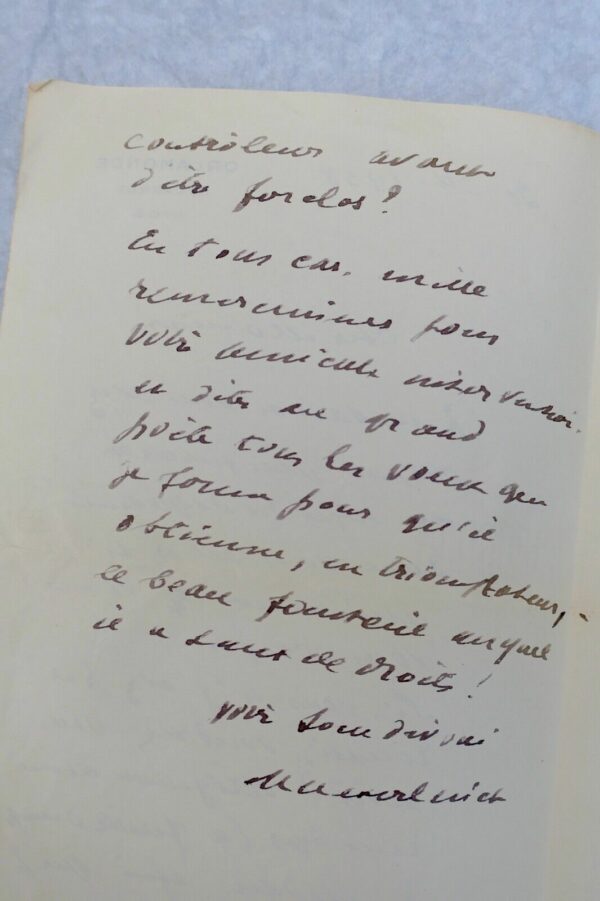 contrôleurs avant
d'être forclos?
En tous cas, mille
remerciements pour
votre amicale intervention.
et dites au grand
poète tous les vœux que
je forme pour qu'il
obtienne, en triomphateur, -
ce beau fauteuil auquel
il a tant de droits!
votre bien dévoué
ORLAMONDE